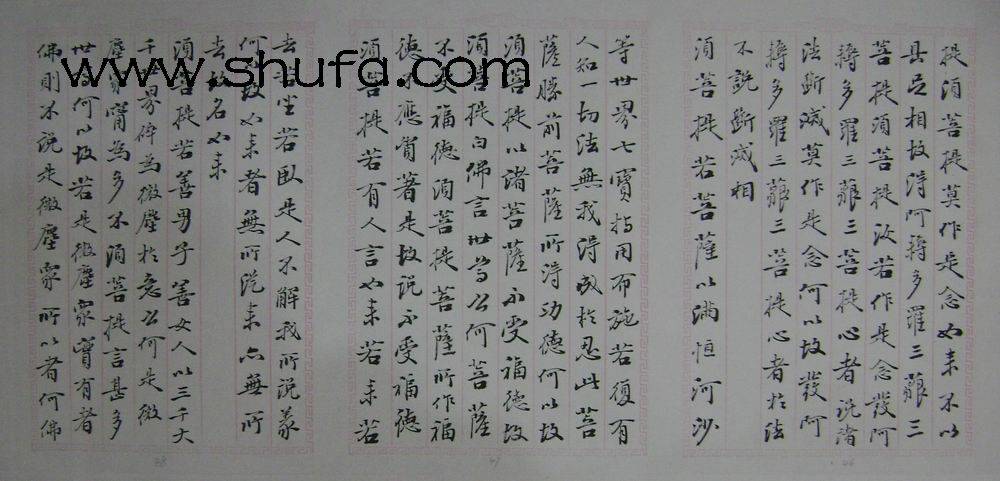 www.shufa.com
提須菩提莫作是念如来不以
具足相故得阿耨多羅三藐三
菩提須菩提汝若作是念發阿
耨多羅三藐三菩提心者說諸
法斷滅莫作是念何以故發阿
耨多羅三藐三菩提心者於法
不說斷滅相
須菩提若菩薩以滿恒河沙
等世界七寶持用布施若復有
人知一切法無我得成於忍此菩
薩勝前菩薩所得功德何以故
須菩提以諸菩薩不受福德故
須菩提白佛言世尊云何菩薩
不受福德須菩提菩薩所作福
德不應貪著是故說不受福德
須菩提若有人言如来若来若
去若坐若卧是人不解我所說義
何以故如来者無所從来亦無所
去故名如来
須菩提若善男子善女人以三千大
千世界碎為微塵於意云何是微
塵眾寧為多不須菩提言甚多
世尊何以故若是微塵眾實有者
佛則不說是微塵眾所以者何佛